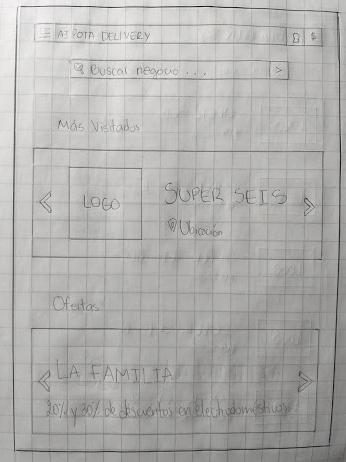 AIPOTA DELIVERY $
Buscar negocio . . . >
Más Visitados
< LOGO SUPER SEIS >
Ubicación
Ofertas
< LA FAMILIA >
20% y 30% de descuentos en electrodomésticos